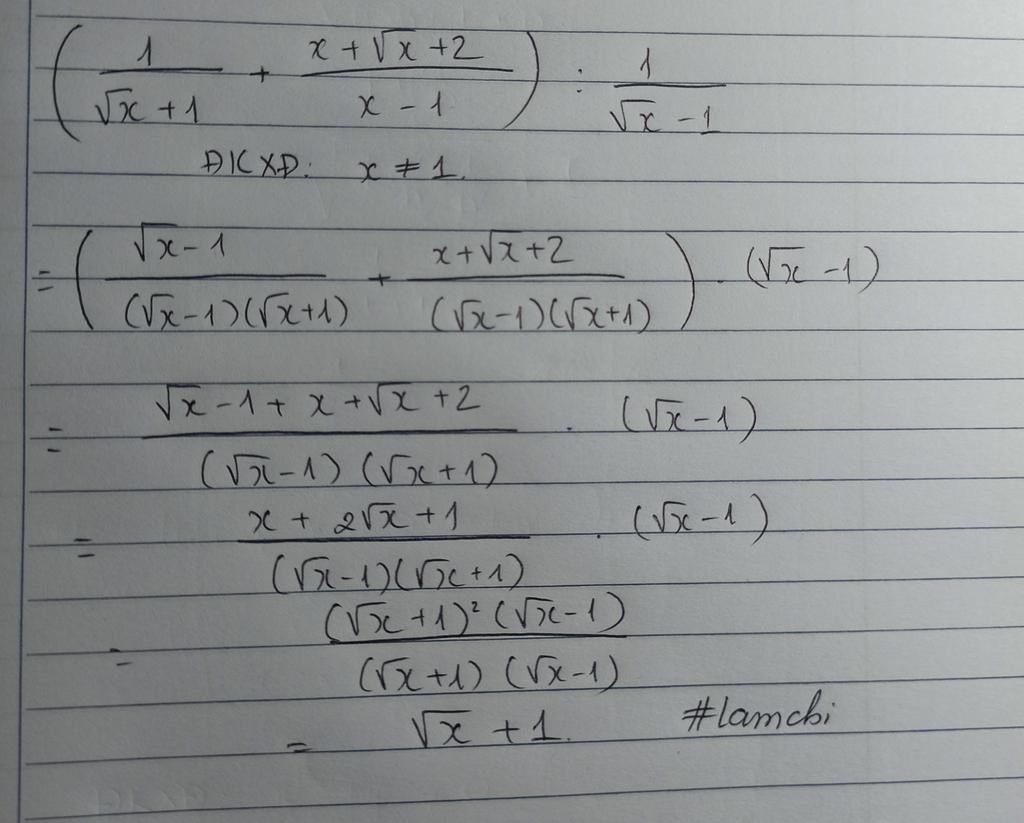 (1/(√x + 1) + (x + √x + 2)/(x - 1)) : 1/(√x - 1)
ĐKXĐ: x ≠ 1.
= ((√x - 1)/((√x - 1)(√x + 1)) + (x + √x + 2)/((√x - 1)(√x + 1))) . (√x - 1)
= (√x - 1 + x + √x + 2)/((√x - 1)(√x + 1)) . (√x - 1)
= (x + 2√x + 1)/((√x - 1)(√x + 1)) . (√x - 1)
= ((√x + 1)² (√x - 1))/((√x + 1)(√x - 1))
= √x + 1. #lamchi